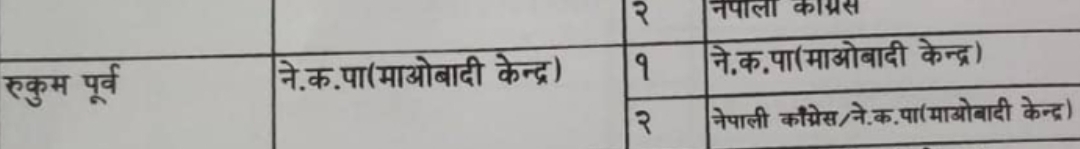 २ नेपाली काँग्रेस
रुकुम पूर्व ने.क.पा(माओबादी केन्द्र) १ ने.क.पा(माओबादी केन्द्र)
२ नेपाली काँग्रेस/ने.क.पा(माओबादी केन्द्र)